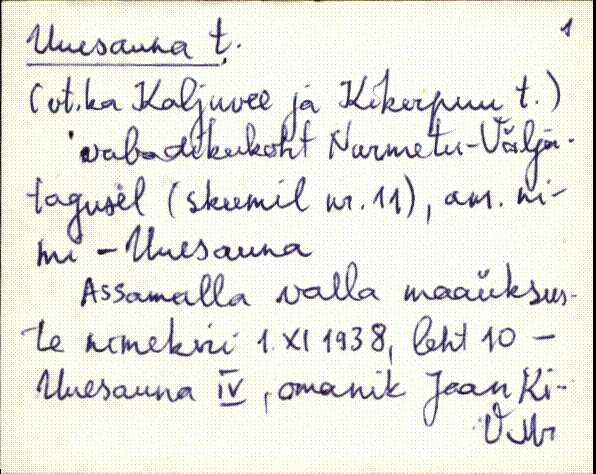 1
Uuesauna t.
(vt. ka Kaljuvee ja Kikerpuu t.)
vabadikukoht Nurmetu-Välja-
tagusel (skeemil nr. 11), am. ni-
mi - Uuesauna
Assamalla valla maaüksus-
te nimekiri 1. XI 1938, leht 10 -
Uuesauna IV, omanik Jaan Ki-